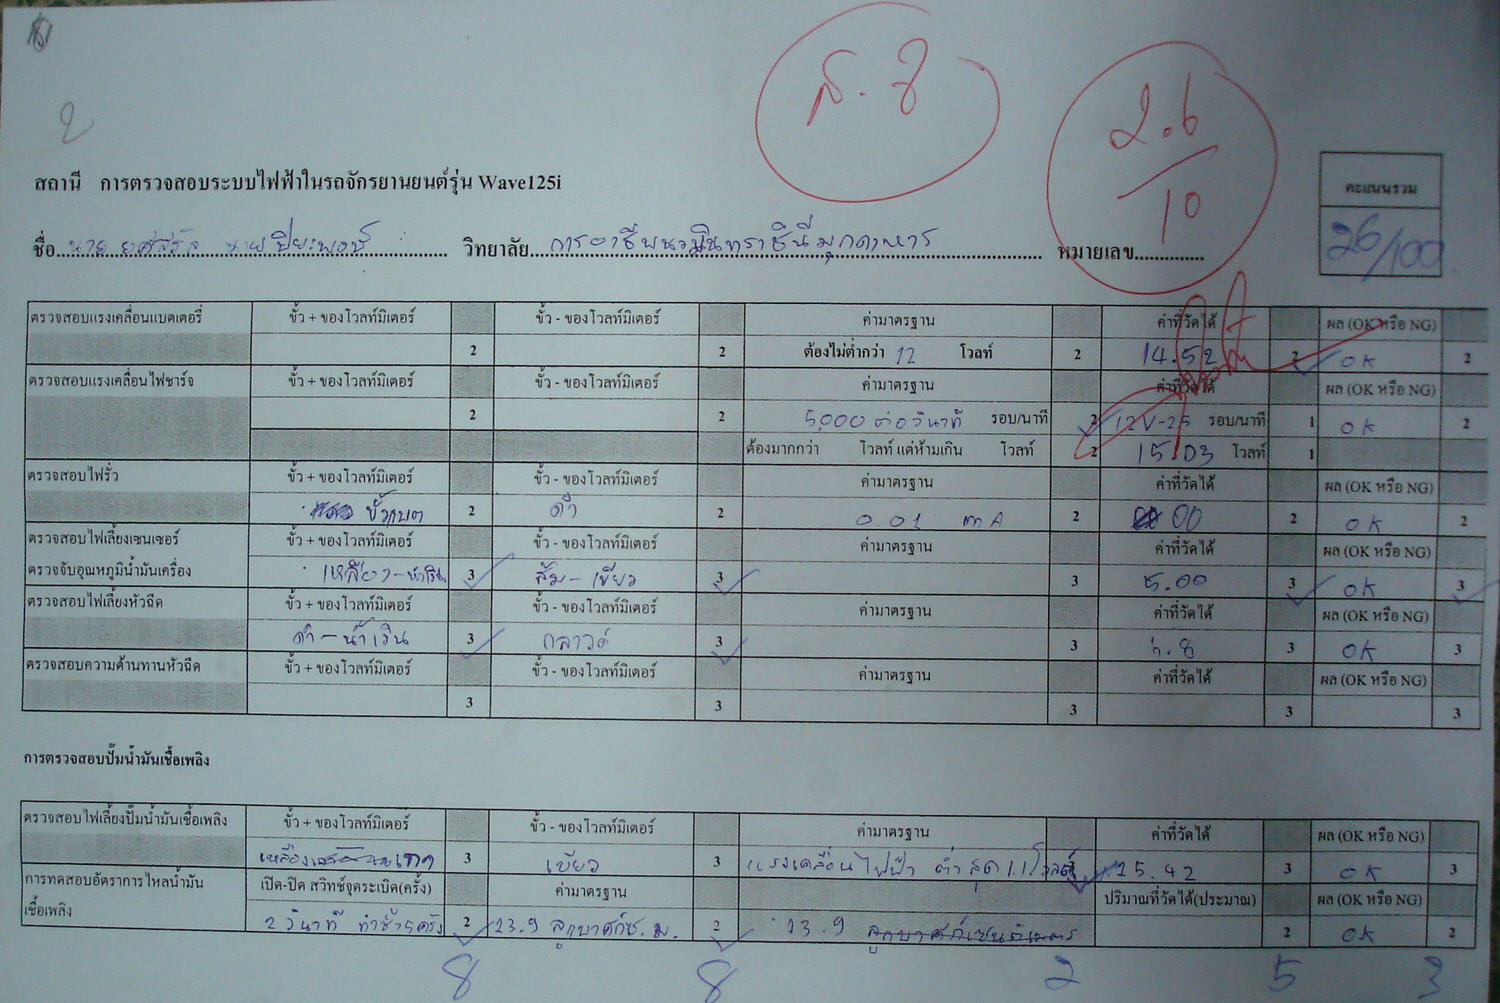 2
ส. 8
2.6
10
สถานี การตรวจสอบระบบไฟฟ้าในรถจักรยานยนต์รุ่น Wave125i
คะแนนรวม
26/100
ชื่อ นาย วิทยาลัย การอาชีพนวมินทราชินีมุกดาหาร หมายเลข..............
ตรวจสอบแรงเคลื่อนแบตเตอรี่ ขั้ว + ของโวลท์มิเตอร์ ขั้ว - ของโวลท์มิเตอร์ ค่ามาตรฐาน ค่าที่วัดได้ ผล (OK หรือ NG)
2 2 ต้องไม่ต่ำกว่า 12 โวลท์ 2 14.52 2 OK 2
ตรวจสอบแรงเคลื่อนไฟชาร์จ ขั้ว + ของโวลท์มิเตอร์ ขั้ว - ของโวลท์มิเตอร์ ค่ามาตรฐาน ค่าที่วัดได้ ผล (OK หรือ NG)
2 2 5,000 ต่อวินาที รอบ/นาที 2 12V-25 รอบ/นาที 1 OK 2
ต้องมากกว่า โวลท์ แต่ห้ามเกิน โวลท์ 2 15.03 โวลท์ 1
ตรวจสอบไฟรั่ว ขั้ว + ของโวลท์มิเตอร์ ขั้ว - ของโวลท์มิเตอร์ ค่ามาตรฐาน ค่าที่วัดได้ ผล (OK หรือ NG)
ขั้วแบต 2 ดำ 2 0.01 mA 2 00 2 OK 2
ตรวจสอบไฟเลี้ยงเซนเซอร์ ขั้ว + ของโวลท์มิเตอร์ ขั้ว - ของโวลท์มิเตอร์ ค่ามาตรฐาน ค่าที่วัดได้ ผล (OK หรือ NG)
ตรวจจับอุณหภูมิน้ำมันเครื่อง เหลือง-น้ำเงิน 3 ส้ม-เขียว 3 3 5.00 3 OK 3
ตรวจสอบไฟเลี้ยงหัวฉีด ขั้ว + ของโวลท์มิเตอร์ ขั้ว - ของโวลท์มิเตอร์ ค่ามาตรฐาน ค่าที่วัดได้ ผล (OK หรือ NG)
ดำ-น้ำเงิน 3 กลาวด์ 3 3 3 OK 3
ตรวจสอบความต้านทานหัวฉีด ขั้ว + ของโวลท์มิเตอร์ ขั้ว - ของโวลท์มิเตอร์ ค่ามาตรฐาน ค่าที่วัดได้ ผล (OK หรือ NG)
3 3 3 3 3
การตรวจสอบปั๊มน้ำมันเชื้อเพลิง
ตรวจสอบไฟเลี้ยงปั๊มน้ำมันเชื้อเพลิง ขั้ว + ของโวลท์มิเตอร์ ขั้ว - ของโวลท์มิเตอร์ ค่ามาตรฐาน ค่าที่วัดได้ ผล (OK หรือ NG)
3 เขียว 3 แรงเคลื่อนไฟฟ้า ต่ำสุด 11 โวลต์ 15.42 3 OK 3
การทดสอบอัตราการไหลน้ำมัน เปิด-ปิด สวิทช์จุดระเบิด(ครั้ง) ค่ามาตรฐาน ปริมาณที่วัดได้(ประมาณ) ผล (OK หรือ NG)
เชื้อเพลิง 2 วินาที ทำซ้ำ 5 ครั้ง 2 13.9 ลูกบาศก์ซ.ม. 2 13.9 ลูกบาศก์เซนติเมตร 2 OK 2
8 8 2 5 3